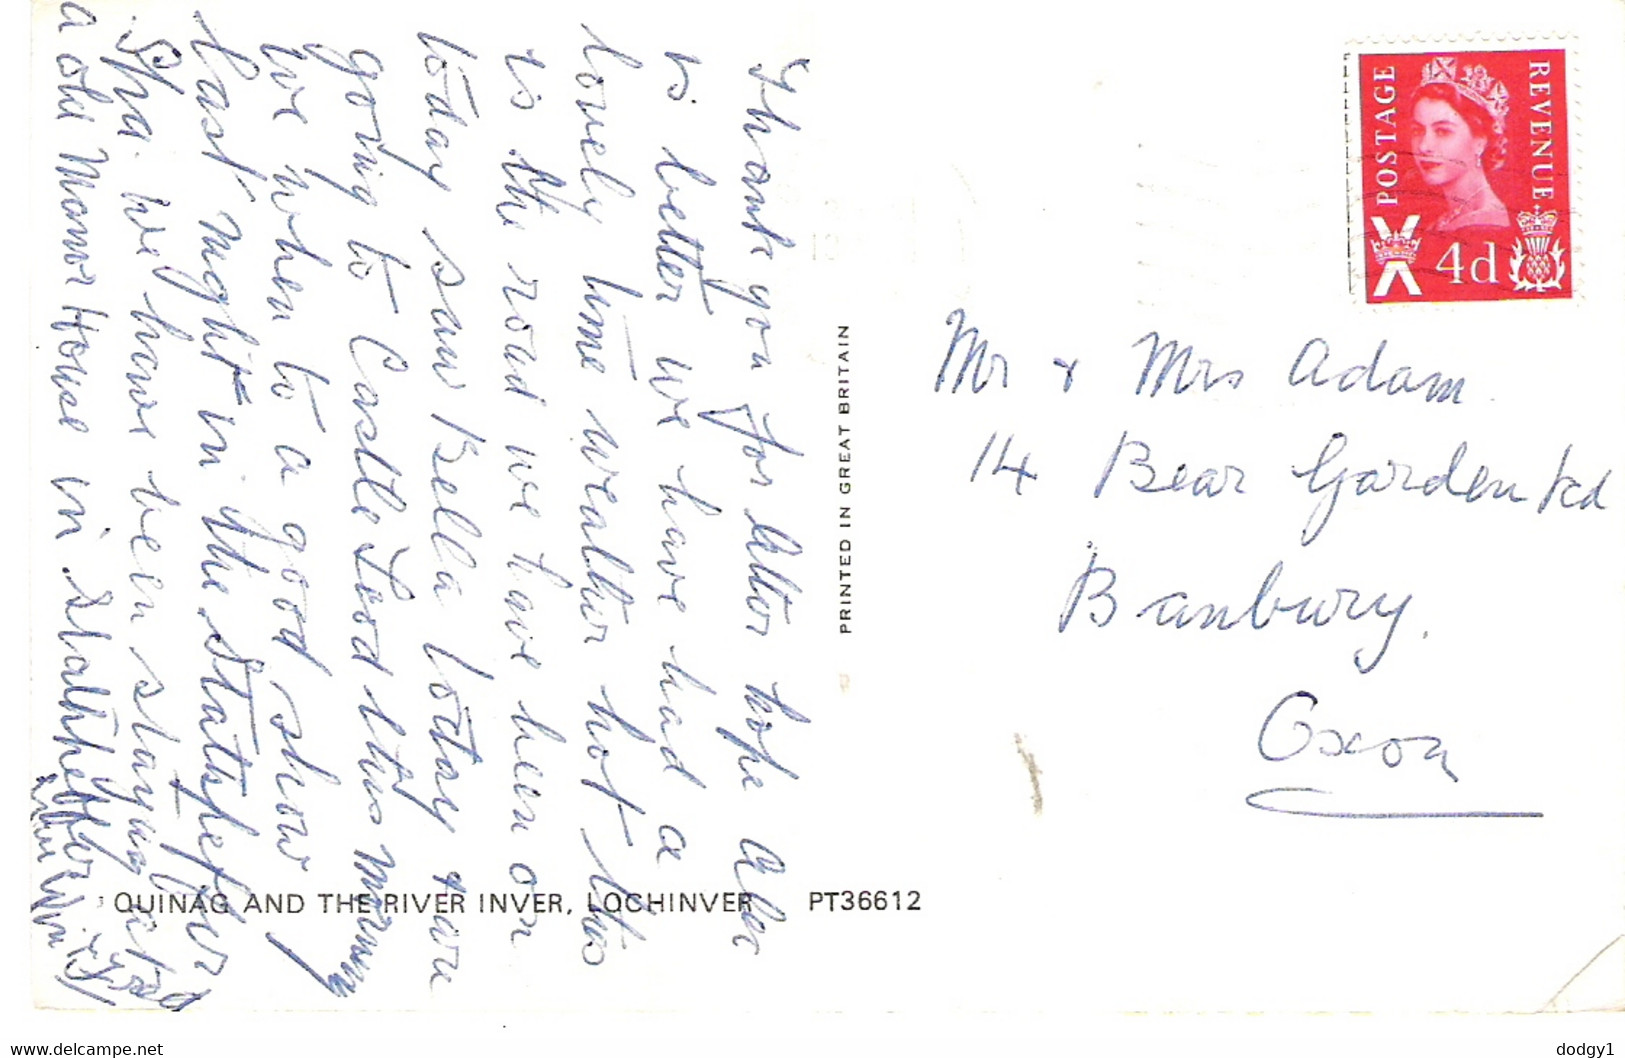 Thank you for letter hope Alec
is better we have had a
lovely time weather hot this
is the road we have been on
today saw Bella today & are
going to Castle Tood this morning
we when to a good show
last night in the Strathpeffer
Spa. we have been staying at
a old Manor House in Strathpeffer
PRINTED IN GREAT BRITAIN
QUINAG AND THE RIVER INVER, LOCHINVER PT36612
POSTAGE
REVENUE
4d
Mr & Mrs Adam.
14 Bear Garden Rd
Banbury.
Oxon
www.delcampe.net
dodgy1